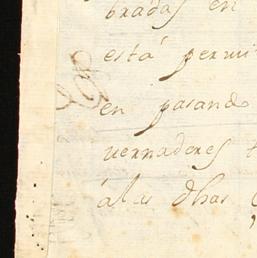 bradas en
está permi
en pasand
uernadores
á las dhas